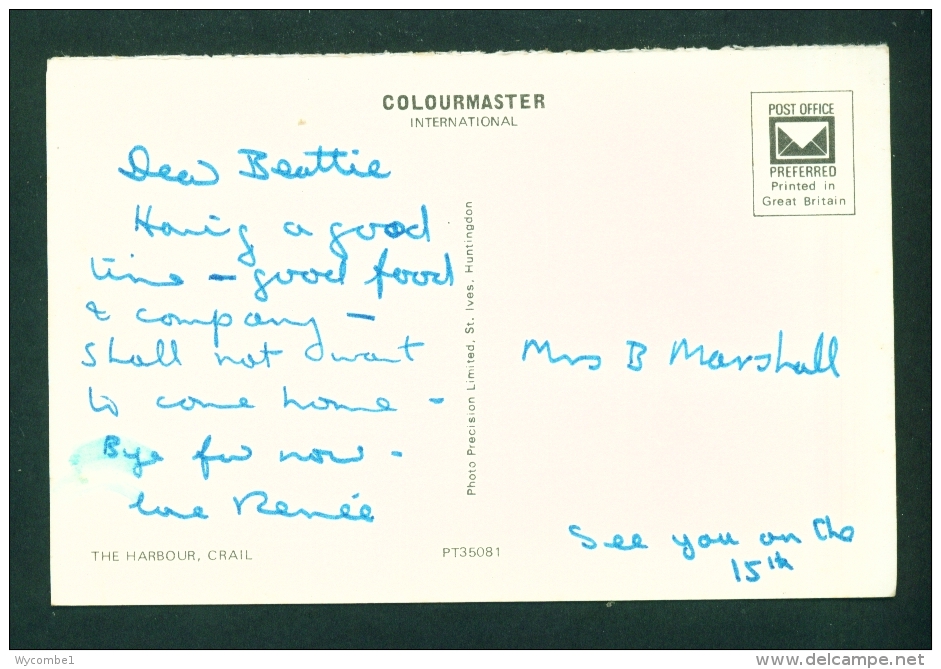 COLOURMASTER
INTERNATIONAL
POST OFFICE
PREFERRED
Printed in
Great Britain
Dear Beattie
Having a good
time - good food
& company -
Shall not want
to come home -
Bye for now -
love Renée
Photo Precision Limited, St. Ives, Huntingdon
Mrs B Marshall
See you on the
15th
THE HARBOUR, CRAIL
PT35081
Wycombe1
www.delcampe.net